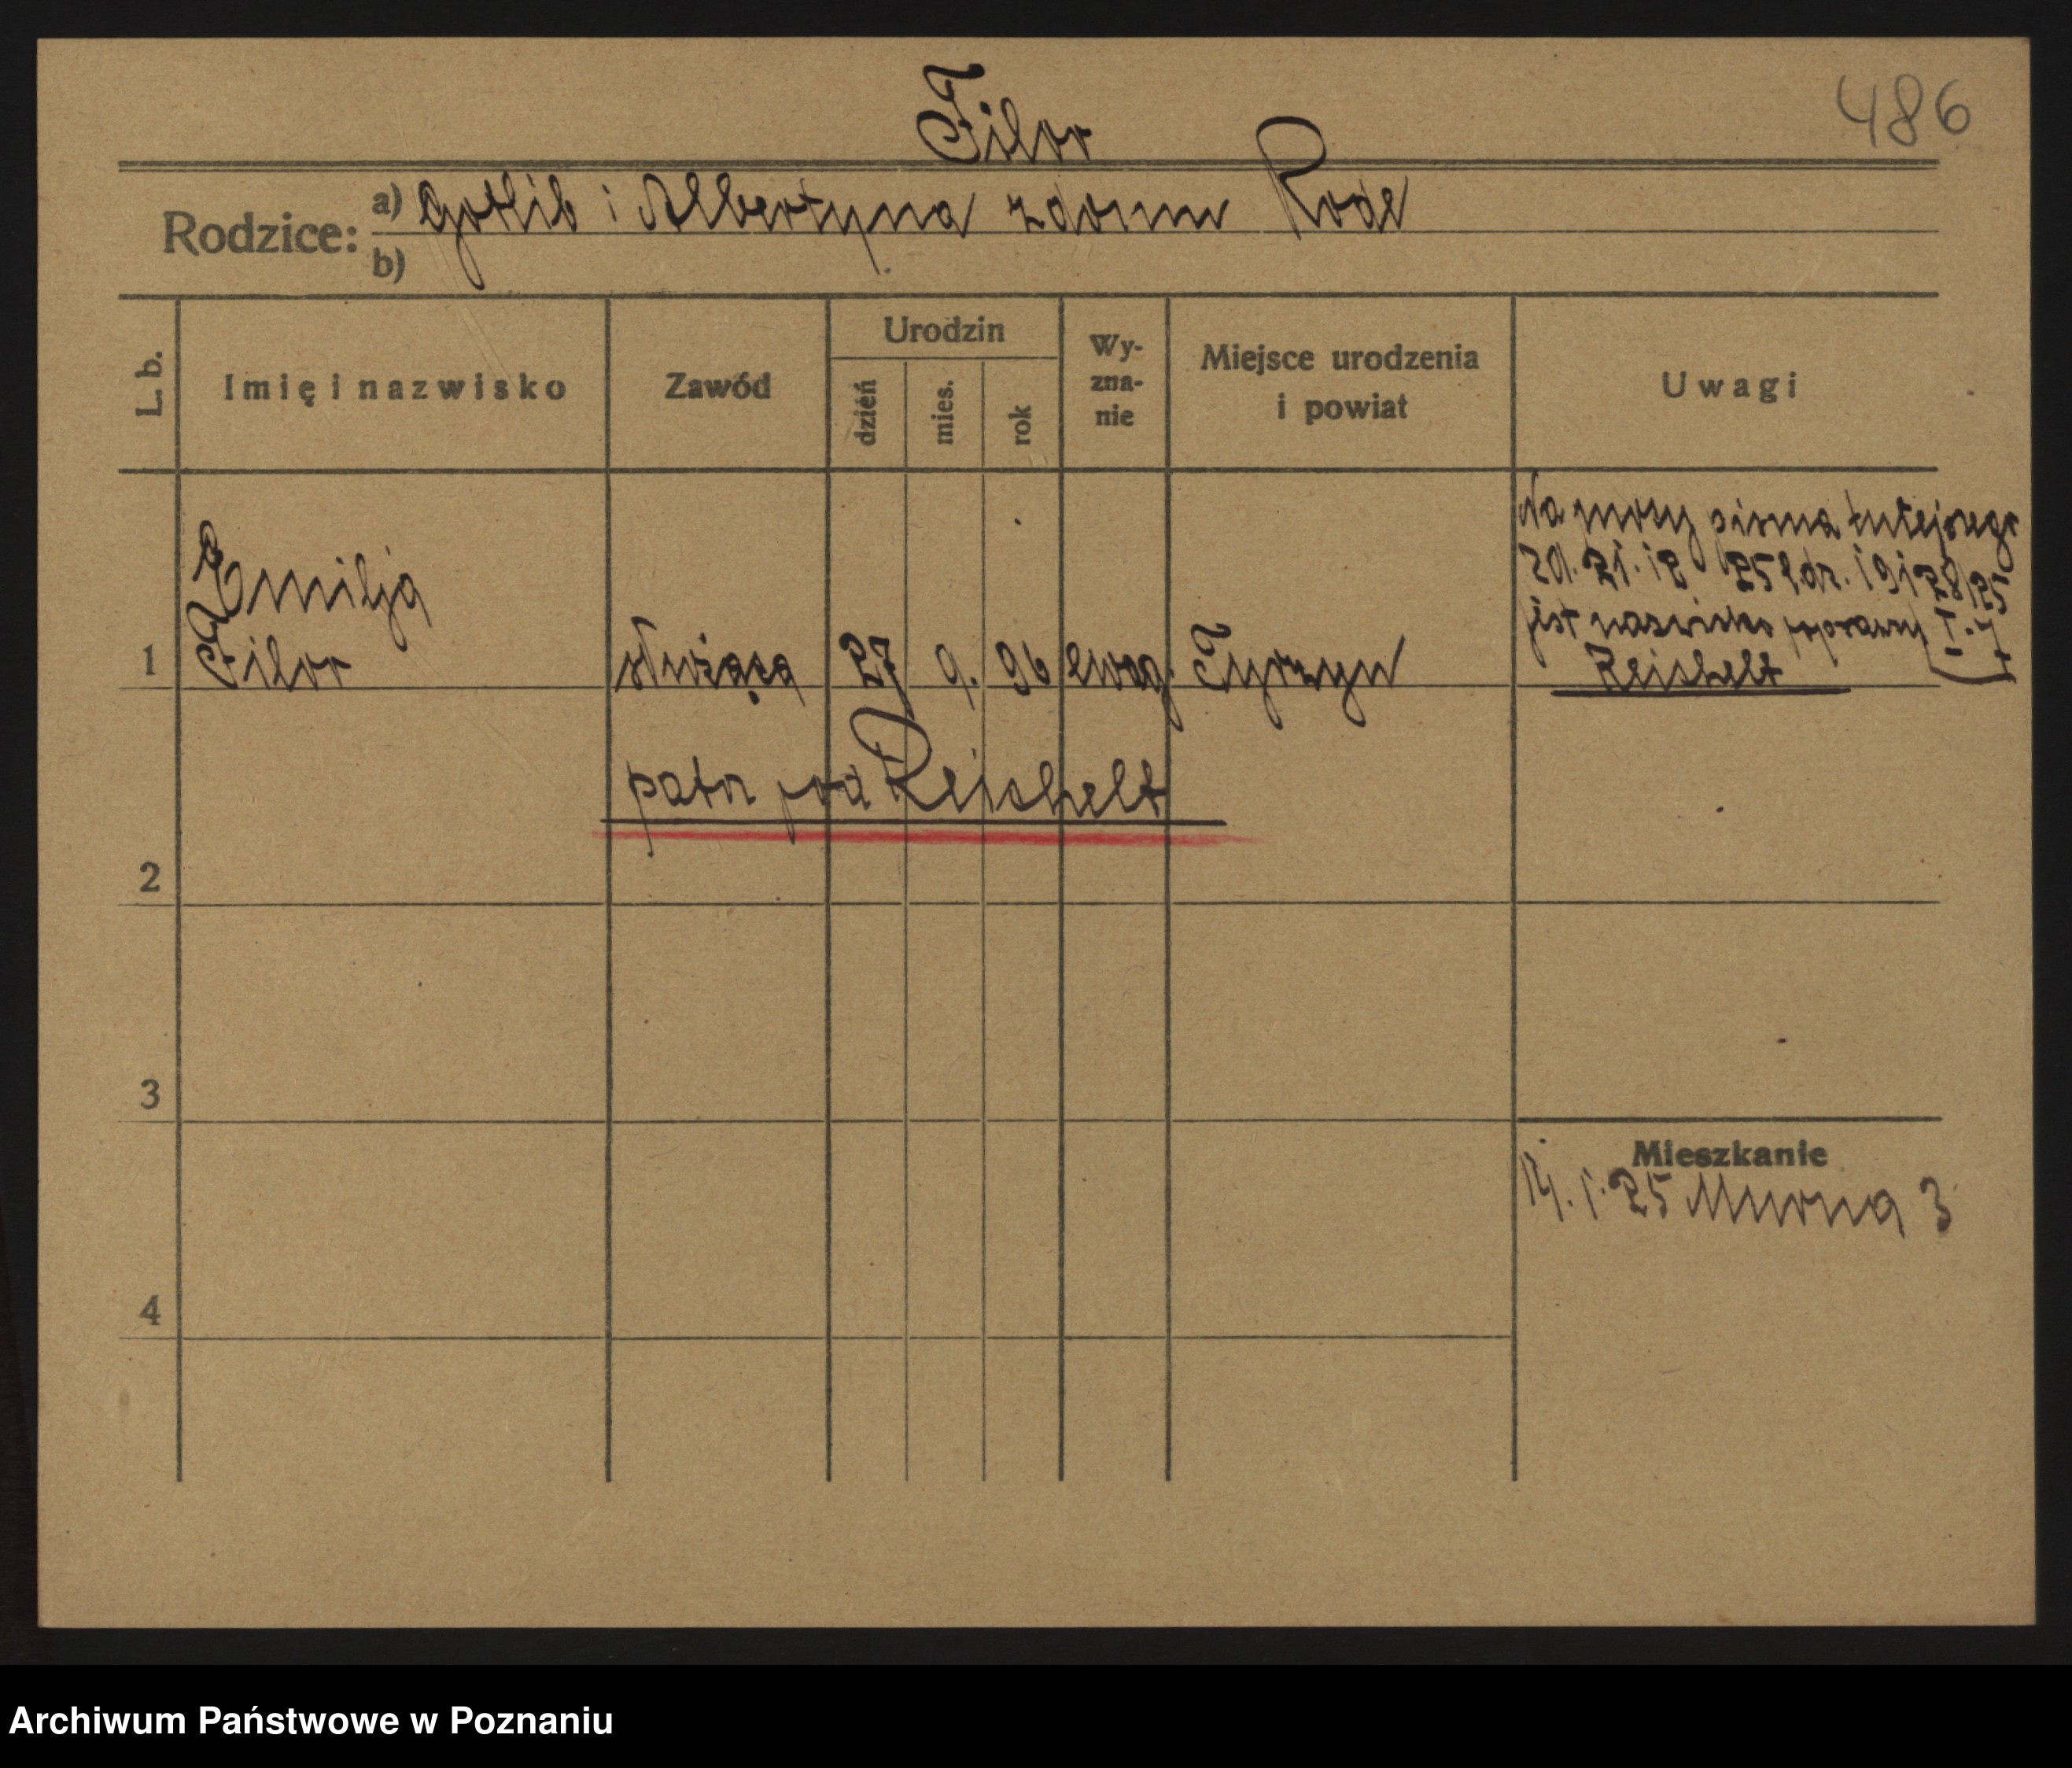 486
Filor
Rodzice:
a) Gotlib i Albertyna z domu Rode
b)
L. b.
Imię i nazwisko
Zawód
Urodzin
dzień
mies.
rok
Wy-
zna-
nie
Miejsce urodzenia
i powiat
Uwagi
1
Emilja
Filor
służąca
27
9.
96
ewag.
Tyrzyn
Na mocy pisma tutejszego
z d. 21. 12 25 l.dz. 19128/25
jest nazwisko poprawn
Reichelt
patrz pod Reichelt
2
3
4
Mieszkanie
14. 1. 25 Murna 3
Archiwum Państwowe w Poznaniu